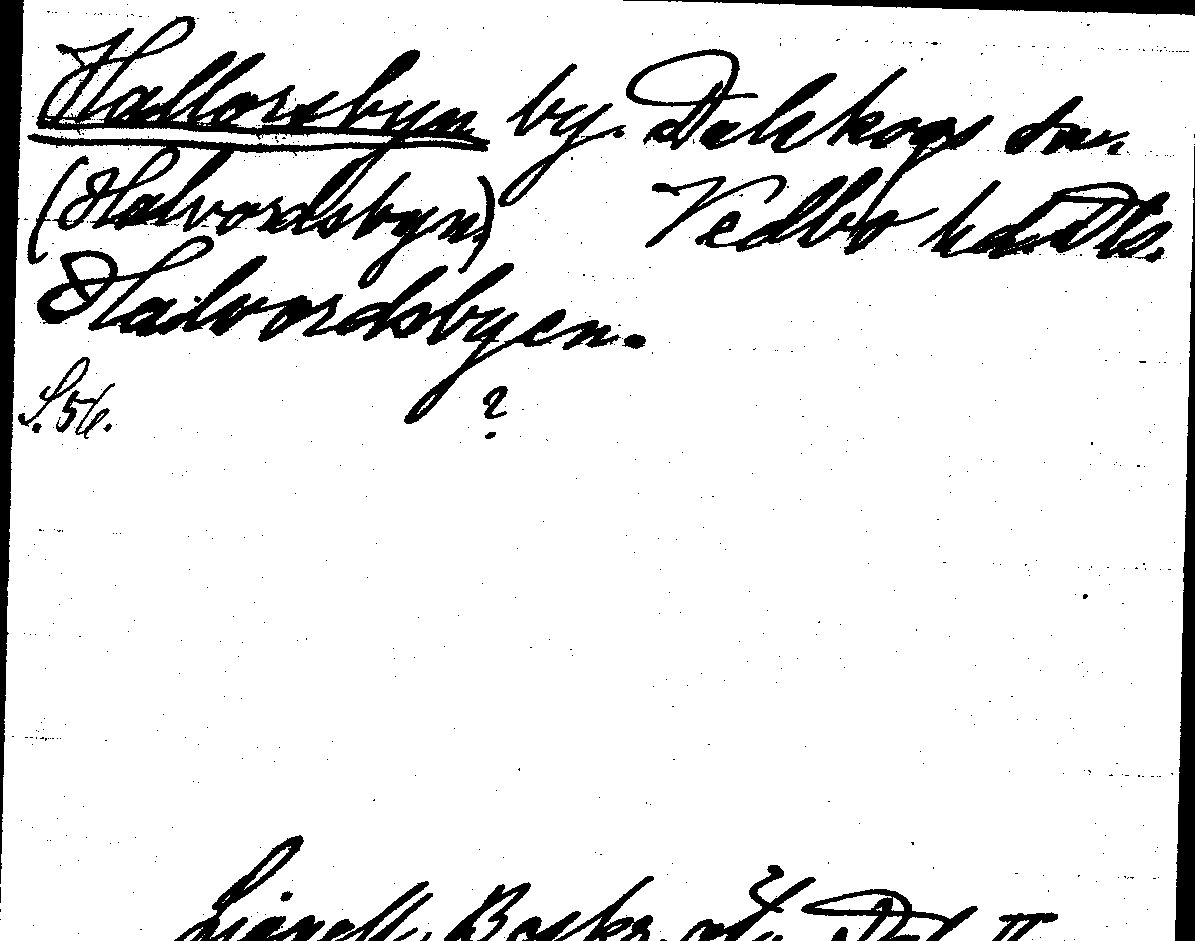 Hallorsbyn by. Dalskogs sn.
(Halvordsbyn) Vedbo hd. Dls.
Halvordsbyen.
S. 56. ?
Lignell, Beskr. öf. Dal II